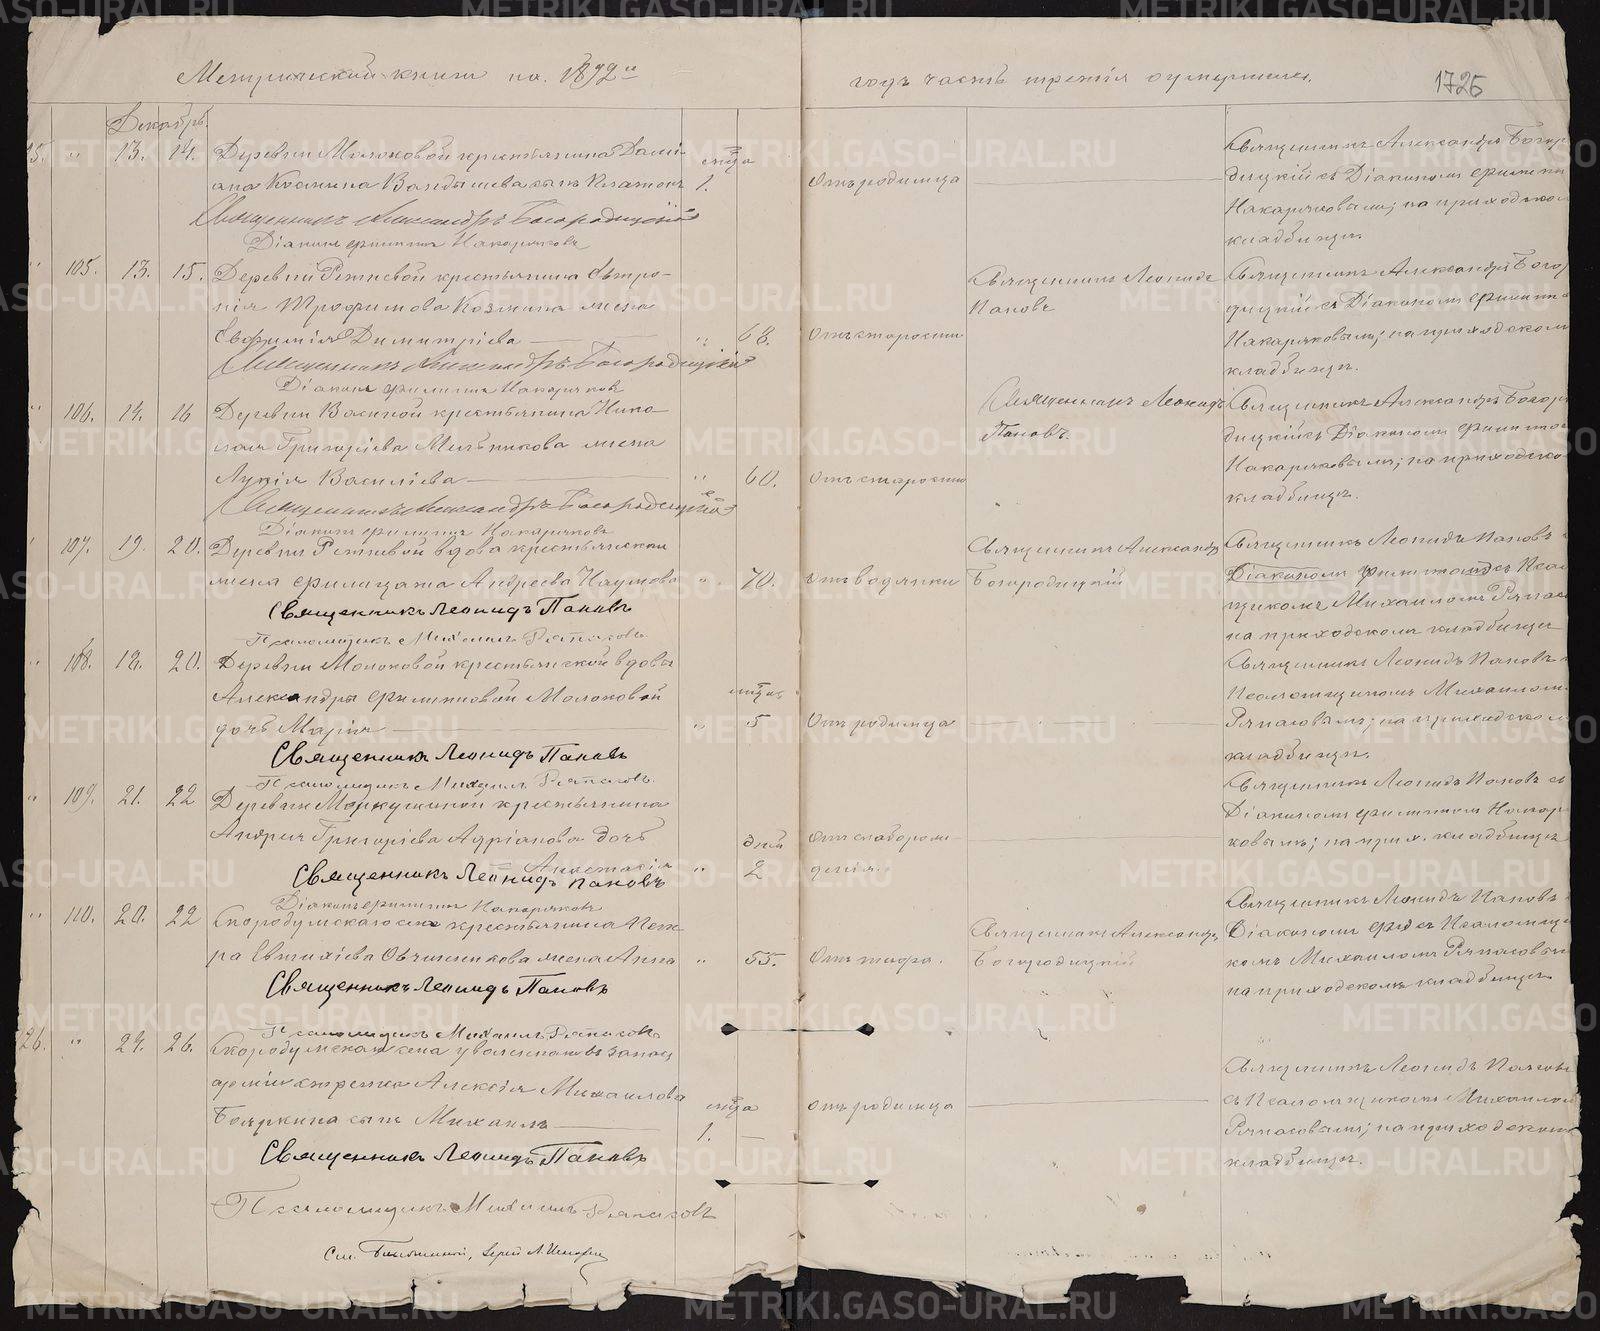 Метрической книги на 1892й
годъ часть третія о умершихъ.
1725
Декабрь.
" 13. 14. Деревни Молоковой крестьянина Дамі-
ана Козмина Вандышева сынъ Платонъ
мѣсяца
1.
Отъ родимца
Священникъ Александръ Богор
дицкій съ Діакономъ Филиппо
Накаряковымъ; на приходском
кладбищѣ.
Священникъ Александръ Богородицкій
Діаконъ Филиппъ Накаряковъ
105. 13. 15. Деревни Ретневой крестьянина Петро-
нія Трофимова Козмина жена
Евфимія Димитріева
" 68.
Отъ старости
Священникъ Леонидъ
Пановъ
Священникъ Александръ Богор
дицкій съ Діакономъ Филиппо
Накаряковымъ; на приходскомъ
кладбищѣ.
Священникъ Александръ Богородицкій
Діаконъ Филиппъ Накаряковъ
106. 14. 16 Деревни Васиной крестьянина Нико
лая Григоріева Мельникова жена
Лукія Василіева
" 60.
Отъ старости
Священникъ Леонидъ
Пановъ.
Священникъ Александръ Богор
дицкій съ Діакономъ Филиппо
Накаряковымъ; на приходско
кладбищѣ.
Священникъ Александръ Богородицкій
Діаконъ Филиппъ Накаряковъ
107. 19. 20. Деревни Ретневой вдова крестьянская
жена Филицата Андреева Наумова
" 70.
Отъ водянки
Священникъ Александръ
Богородицкій
Священникъ Леонидъ Пановъ
Діакономъ Филиппомъ съ Псал
щикомъ Михаиломъ Ряпас
на приходскомъ кладбищѣ
Священникъ Леонидъ Пановъ
Псаломщикъ Михаилъ Ряпасовъ
108. 18. 20. Деревни Молоковой крестьянской вдовы
Александры Филипповой Молоковой
дочь Марія
мѣсяц.
" 5
Отъ родимца
Священникъ Леонидъ Пановъ
Псаломщикомъ Михаиломъ
Ряпасовымъ; на приходском
кладбищѣ.
Священникъ Леонидъ Пановъ
Псаломщикъ Михаилъ Ряпасовъ.
" 109. 21. 22 Деревни Меркушиной крестьянина
Андрея Григоріева Адріанова дочь
Анастасія
дней
" 2
Отъ слаборож-
денія.
Священникъ Леонидъ Пановъ съ
Діакономъ Филиппомъ Накаря
ковымъ; на прих. кладбищѣ
Священникъ Леонидъ Пановъ
Діаконъ Филиппъ Накаряковъ
" 110. 20. 22 Скородумскаго села крестьянина Пет-
ра Евтихіева Овчинникова жена Анна
" 55.
Отъ тифа.
Священникъ Александръ
Богородицкій
Священникъ Леонидъ Пановъ
Діакономъ Ф и съ Псаломщи
комъ Михаиломъ Ряпасовым
на приходскомъ кладбищѣ
Священникъ Леонидъ Пановъ
Псаломщикъ Михаилъ Ряпасовъ
26. " 24. 26. Скородумскаго села уволеннаго въ запас
арміи стрелка Алексія Михаилова
Бояркина сынъ Михаилъ
мѣсяца
1.
Отъ родимца
Священникъ Леонидъ Пановъ
съ Псаломщикомъ Михаилом
Ряпасовымъ; на приходском
кладбищѣ.
Священникъ Леонидъ Пановъ
Псаломщикъ Михаилъ Ряпасовъ
METRIKI.GASO-URAL.RU